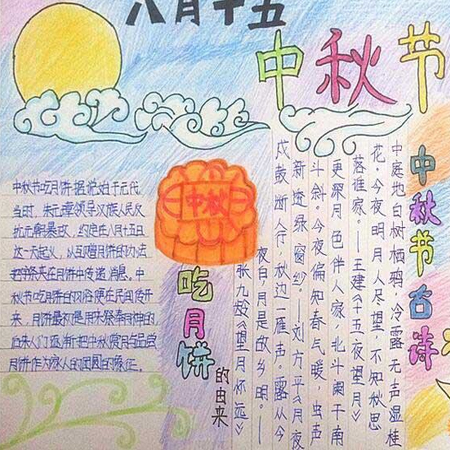 八月十五
中秋节
中秋
中秋节吃月饼据说始于元代,
当时,朱元璋领导汉族人民反
抗元朝暴政,约定在八月十五日
这一天起义,以互赠月饼的办法
把字条夹在月饼中传递消息。中
秋节吃月饼的习俗便在民间传开
来,月饼最初是用来祭奉月神的
后来人们逐渐把中秋赏月与品尝
月饼作为家人的团圆的象征。
吃月饼
的由来
中秋节古诗
中庭地白树栖鸦,冷露无声湿桂
花。今夜明月人尽望,不知秋思
落谁家。—王建《十五夜望月》
更深月色伴人家,北斗阑干南
斗斜。今夜偏知春气暖,虫声
新透绿窗纱。—刘方平《月夜
戍鼓断人行,秋边一雁声。露从今
夜白,月是故乡明。—
张九龄《望月怀远》